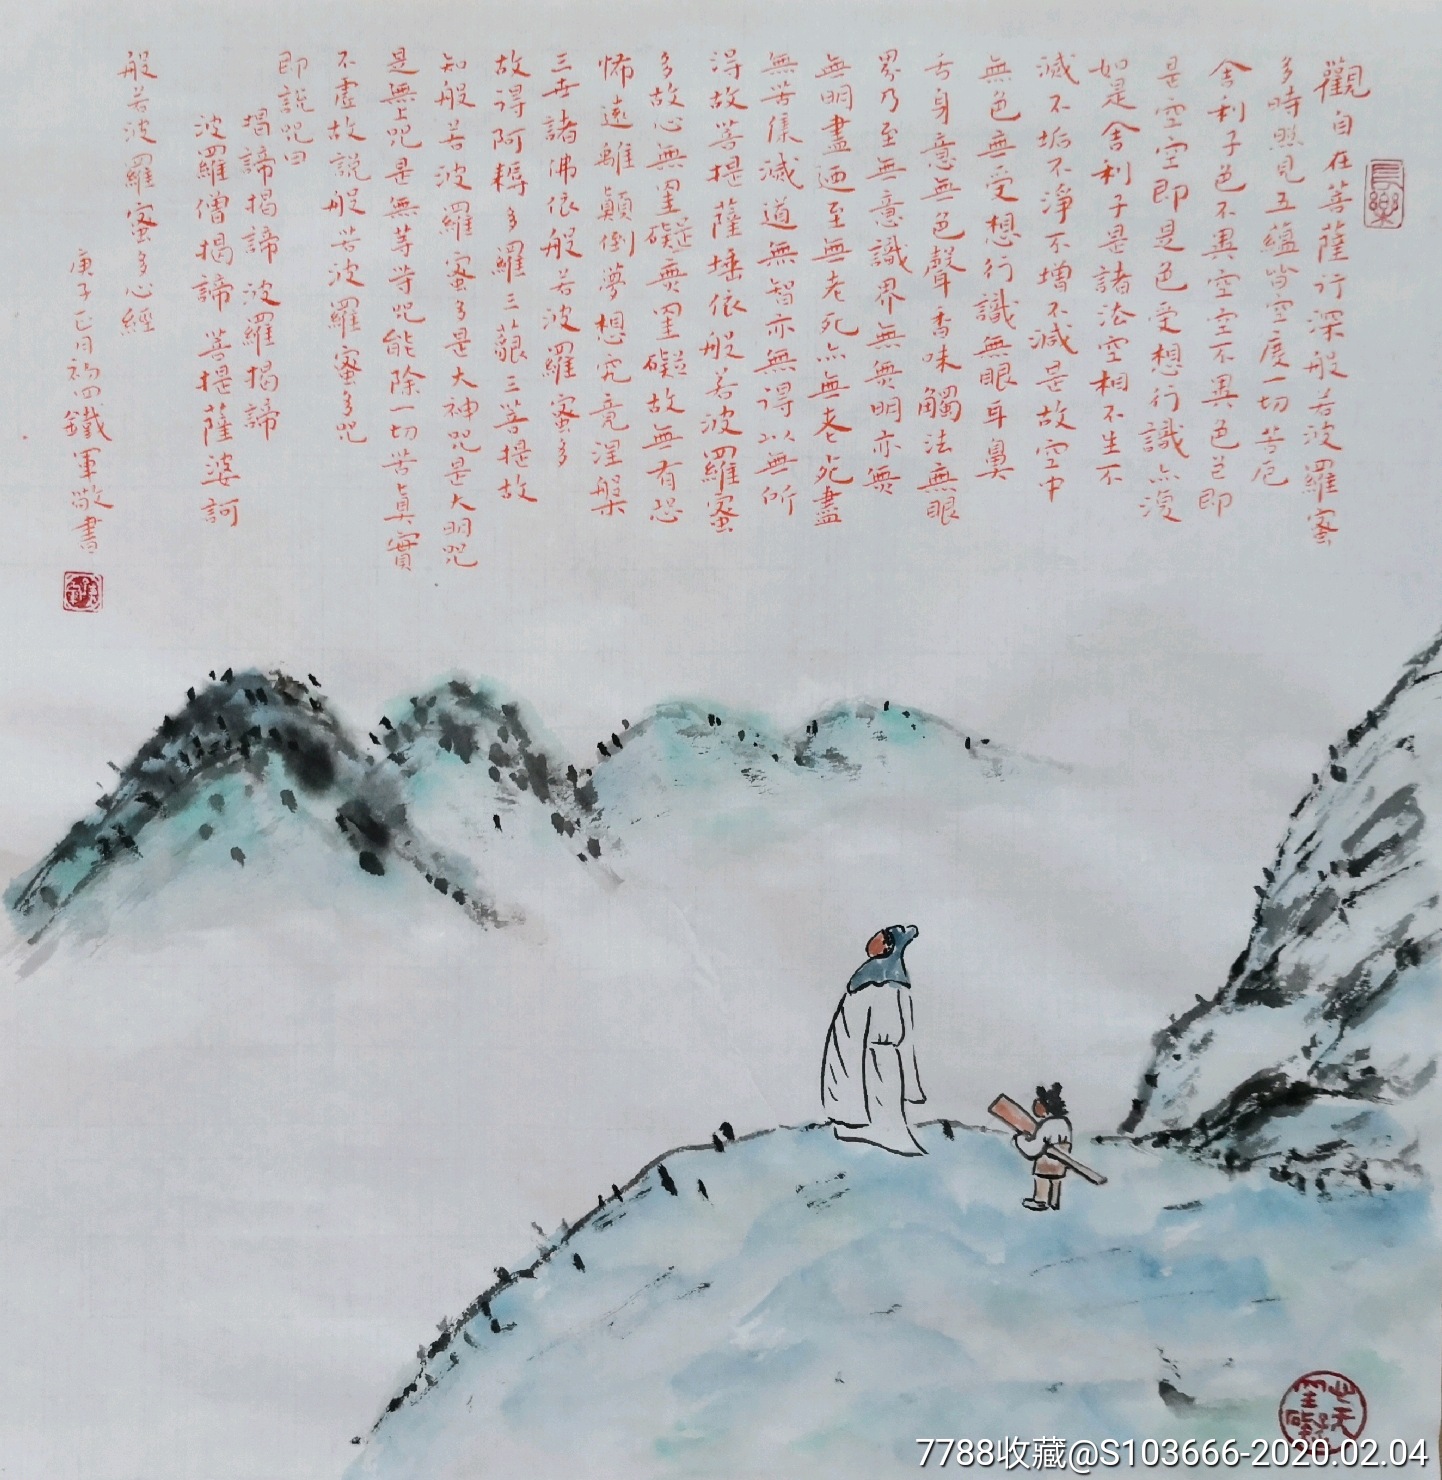 觀自在菩薩行深般若波羅蜜
多時照見五蘊皆空度一切苦厄
舍利子色不異空空不異色色即
是空空即是色受想行識亦復
如是舍利子是諸法空相不生不
滅不垢不淨不增不減是故空中
無色無受想行識無眼耳鼻
舌身意無色聲香味觸法無眼
界乃至無意識界無無明亦無
無明盡迺至無老死亦無老死盡
無苦集滅道無智亦無得以無所
得故菩提薩埵依般若波羅蜜
多故心無罣礙無罣礙故無有恐
怖遠離顛倒夢想究竟涅槃
三世諸佛依般若波羅蜜多
故得阿耨多羅三藐三菩提故
知般若波羅蜜多是大神咒是大明咒
是無上咒是無等等咒能除一切苦真實
不虛故說般若波羅蜜多咒
即說咒曰
揭諦揭諦波羅揭諦
波羅僧揭諦菩提薩婆訶
般若波羅蜜多心經
庚子正月初四鐵軍敬書
長樂
7788收藏@S103666-2020.02.04